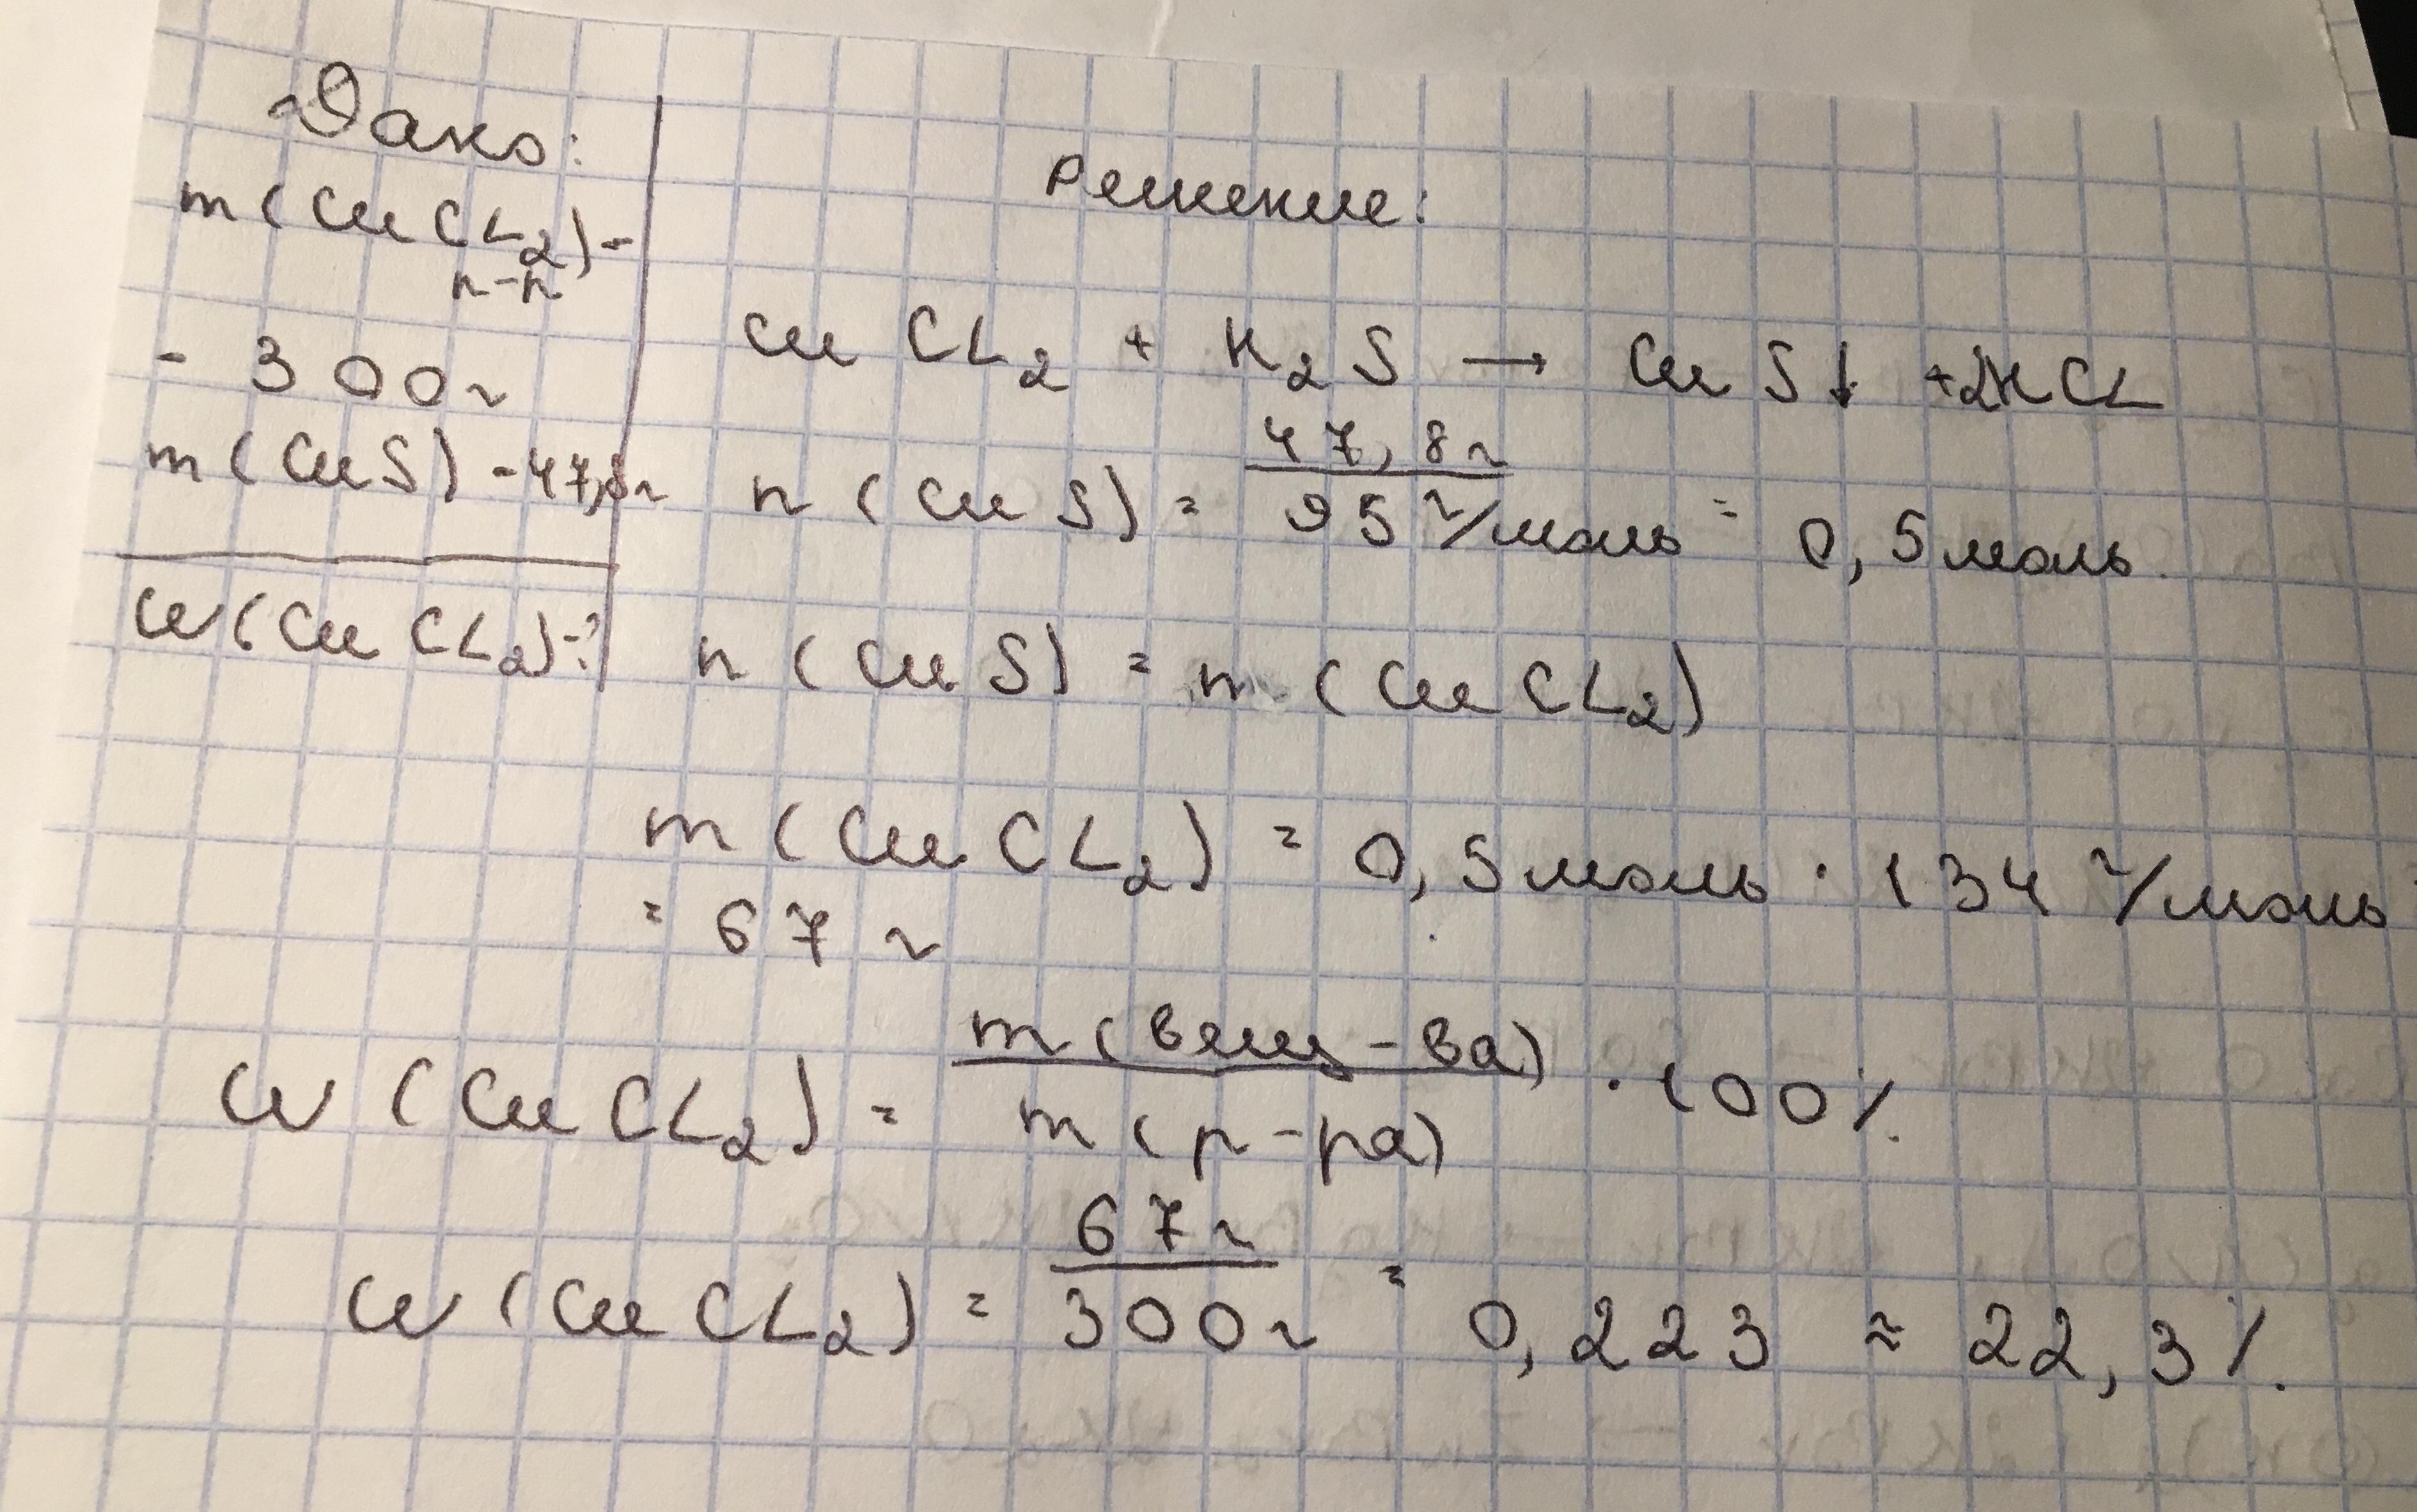 Дано:
m(CuCL₂) -
р-р
- 300г
m(CuS) - 47,8г
W(CuCL₂)-?
Решение:
CuCL₂ + K₂S → CuS↓ + 2KCL
n(CuS) = 47,8г / 95 г/моль = 0,5 моль
n(CuS) = n(CuCL₂)
m(CuCL₂) = 0,5 моль · 134 г/моль =
= 67 г
W(CuCL₂) = m(вещ-ва) / m(р-ра) · 100%
W(CuCL₂) = 67г / 300г = 0,223 ≈ 22,3%